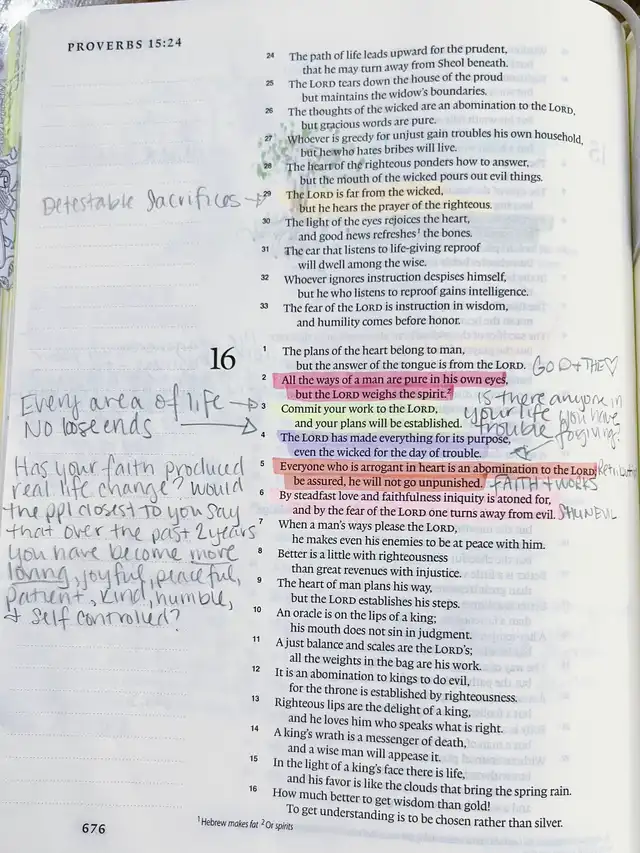 PROVERBS 15:24
24 The path of life leads upward for the prudent,
that he may turn away from Sheol beneath.
25 The LORD tears down the house of the proud
but maintains the widow's boundaries.
26 The thoughts of the wicked are an abomination to the LORD,
but gracious words are pure.
27 Whoever is greedy for unjust gain troubles his own household,
but he who hates bribes will live.
28 The heart of the righteous ponders how to answer,
but the mouth of the wicked pours out evil things.
Detestable Sacrifices →
29 The LORD is far from the wicked,
but he hears the prayer of the righteous.
30 The light of the eyes rejoices the heart,
and good news refreshes¹ the bones.
31 The ear that listens to life-giving reproof
will dwell among the wise.
32 Whoever ignores instruction despises himself,
but he who listens to reproof gains intelligence.
33 The fear of the LORD is instruction in wisdom,
and humility comes before honor.
16
1 The plans of the heart belong to man,
but the answer of the tongue is from the LORD.
GOD + THE ♡
2 All the ways of a man are pure in his own eyes,
but the LORD weighs the spirit.²
3 Commit your work to the LORD,
and your plans will be established.
4 The LORD has made everything for its purpose,
even the wicked for the day of trouble.
5 Everyone who is arrogant in heart is an abomination to the LORD;
be assured, he will not go unpunished.
FAITH + WORKS
6 By steadfast love and faithfulness iniquity is atoned for,
and by the fear of the LORD one turns away from evil.
SHUN EVIL
7 When a man's ways please the LORD,
he makes even his enemies to be at peace with him.
8 Better is a little with righteousness
than great revenues with injustice.
9 The heart of man plans his way,
but the LORD establishes his steps.
10 An oracle is on the lips of a king;
his mouth does not sin in judgment.
11 A just balance and scales are the LORD's;
all the weights in the bag are his work.
12 It is an abomination to kings to do evil,
for the throne is established by righteousness.
13 Righteous lips are the delight of a king,
and he loves him who speaks what is right.
14 A king's wrath is a messenger of death,
and a wise man will appease it.
15 In the light of a king's face there is life,
and his favor is like the clouds that bring the spring rain.
16 How much better to get wisdom than gold!
To get understanding is to be chosen rather than silver.
Every area of life →
NO lose ends →
Has your faith produced
real life change? would
the ppl closest TO you say
that over the past 2 years
you have become more
loving, joyful, peaceful,
patient, kind, humble,
+ self controlled?
is there anyone in
your life you have
trouble forgiving?
676
¹ Hebrew makes fat ² Or spirits